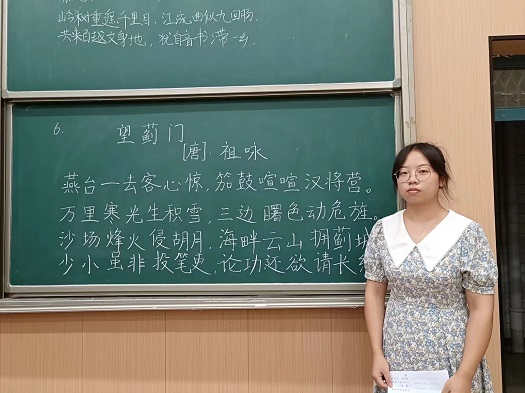 岭树重遮千里目，江流曲似九回肠。
共来百越文身地，犹自音书滞一乡。
6. 望蓟门
[唐]. 祖咏
燕台一去客心惊，笳鼓喧喧汉将营。
万里寒光生积雪，三边曙色动危旌。
沙场烽火侵胡月，海畔云山拥蓟城
少小虽非投笔吏，论功还欲请长